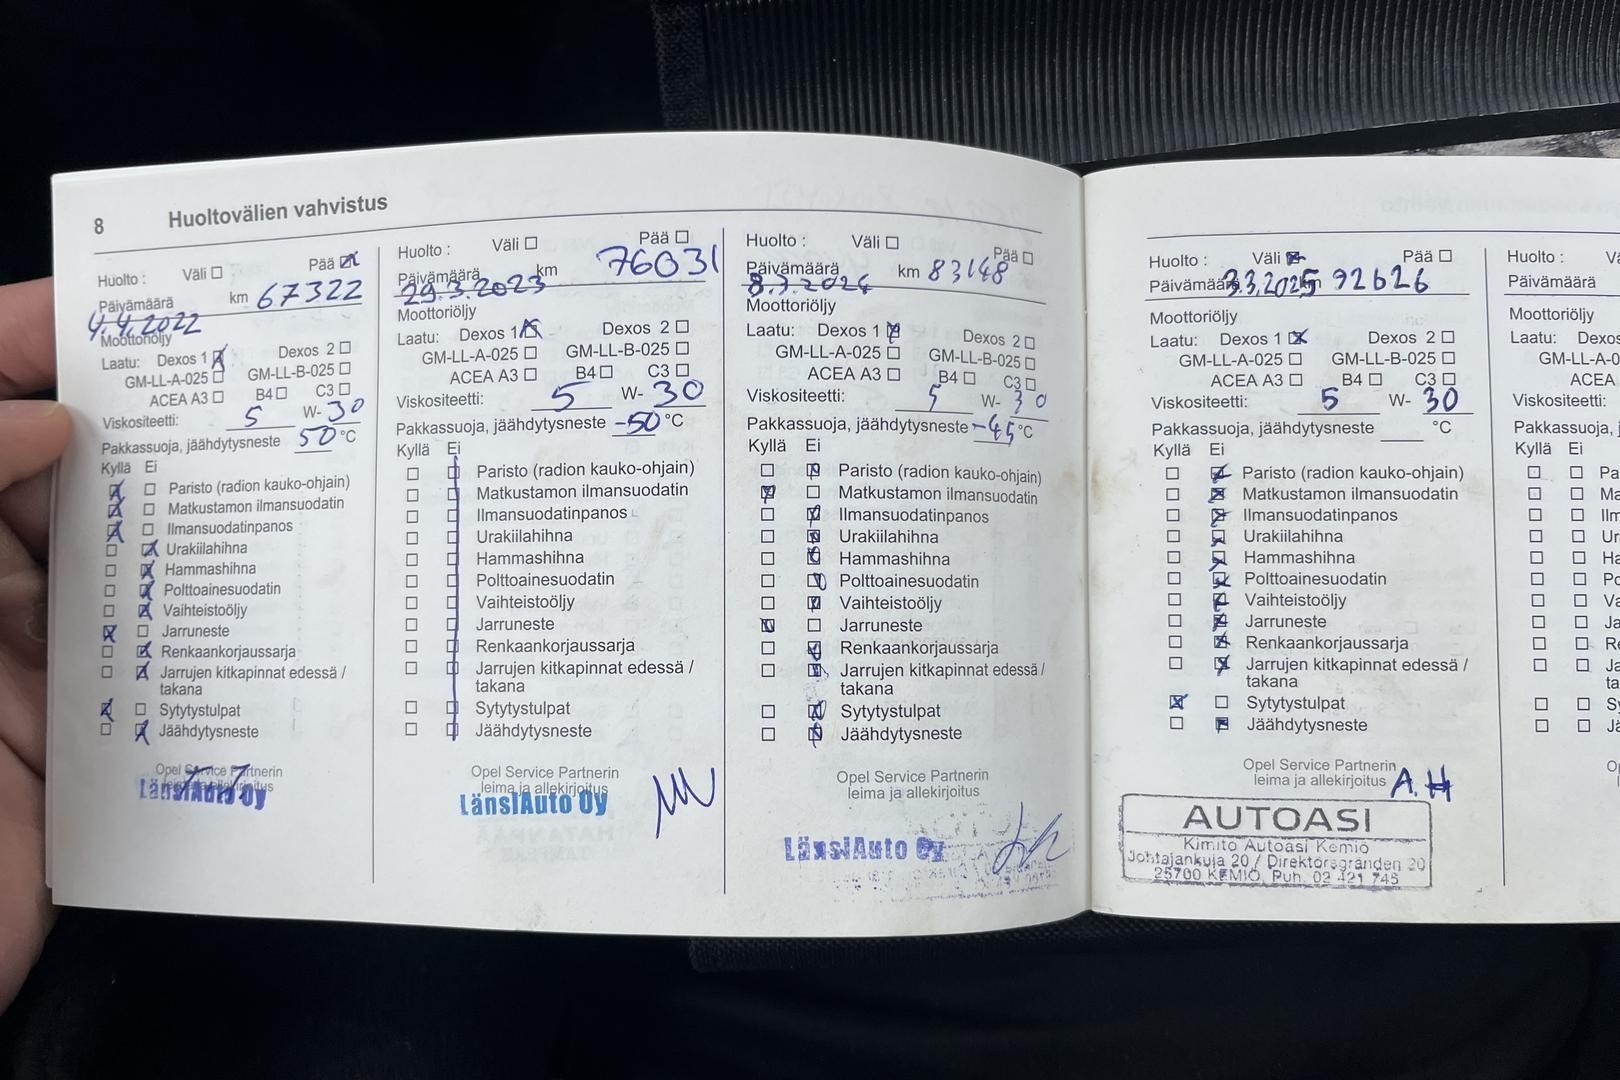 8 Huoltovälien vahvistus
Huolto : Väli Pää
Päivämäärä km 67322
4.4.2022
Moottoriöljy
Laatu: Dexos 1 Dexos 2
GM-LL-A-025 GM-LL-B-025
ACEA A3 B4 C3
Viskositeetti: 5 W- 30
Pakkassuoja, jäähdytysneste 50 °C
Kyllä Ei
Paristo (radion kauko-ohjain)
Matkustamon ilmansuodatin
Ilmansuodatinpanos
Urakiilahihna
Hammashihna
Polttoainesuodatin
Vaihteistoöljy
Jarruneste
Renkaankorjaussarja
Jarrujen kitkapinnat edessä /
takana
Sytytystulpat
Jäähdytysneste
Opel Service Partnerin
leima ja allekirjoitus
LänsiAuto Oy
Huolto : Väli Pää
Päivämäärä km 76031
29.3.2023
Moottoriöljy
Laatu: Dexos 1 Dexos 2
GM-LL-A-025 GM-LL-B-025
ACEA A3 B4 C3
Viskositeetti: 5 W- 30
Pakkassuoja, jäähdytysneste -50 °C
Kyllä Ei
Paristo (radion kauko-ohjain)
Matkustamon ilmansuodatin
Ilmansuodatinpanos
Urakiilahihna
Hammashihna
Polttoainesuodatin
Vaihteistoöljy
Jarruneste
Renkaankorjaussarja
Jarrujen kitkapinnat edessä /
takana
Sytytystulpat
Jäähdytysneste
Opel Service Partnerin
leima ja allekirjoitus
LänsiAuto Oy
Huolto : Väli Pää
Päivämäärä km 83148
8.3.2024
Moottoriöljy
Laatu: Dexos 1 Dexos 2
GM-LL-A-025 GM-LL-B-025
ACEA A3 B4 C3
Viskositeetti: 5 W- 30
Pakkassuoja, jäähdytysneste -45 °C
Kyllä Ei
Paristo (radion kauko-ohjain)
Matkustamon ilmansuodatin
Ilmansuodatinpanos
Urakiilahihna
Hammashihna
Polttoainesuodatin
Vaihteistoöljy
Jarruneste
Renkaankorjaussarja
Jarrujen kitkapinnat edessä /
takana
Sytytystulpat
Jäähdytysneste
Opel Service Partnerin
leima ja allekirjoitus
LänsiAuto Oy
Huolto : Väli Pää
Päivämäärä 3.3.2025 km 92626
Moottoriöljy
Laatu: Dexos 1 Dexos 2
GM-LL-A-025 GM-LL-B-025
ACEA A3 B4 C3
Viskositeetti: 5 W- 30
Pakkassuoja, jäähdytysneste °C
Kyllä Ei
Paristo (radion kauko-ohjain)
Matkustamon ilmansuodatin
Ilmansuodatinpanos
Urakiilahihna
Hammashihna
Polttoainesuodatin
Vaihteistoöljy
Jarruneste
Renkaankorjaussarja
Jarrujen kitkapinnat edessä /
takana
Sytytystulpat
Jäähdytysneste
Opel Service Partnerin
leima ja allekirjoitus
A.H
AUTOASI
Kimito Autoasi Kemiö
Johtajankuja 20 / Direktörsgränden 20
25700 KEMIÖ, Puh. 02 421 745
Huolto :
Päivämäärä
Moottoriöljy
Laatu:
Viskositeetti:
Kyllä Ei